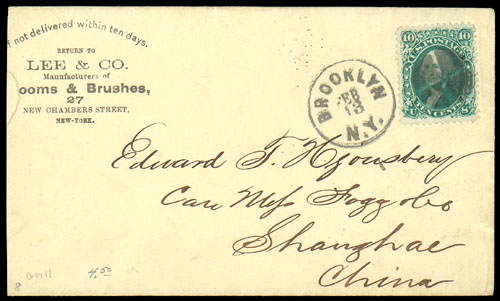 f not delivered within ten days.
RETURN TO
LEE & CO.
Manufacturers of
ooms & Brushes,
27
NEW CHAMBERS STREET,
NEW-YORK.
BROOKLYN
FEB
13
N.Y.
10 U.S. POSTAGE 10
Edward T.
Care Messrs Fogg & Co
Shanghae
China
4.50
8